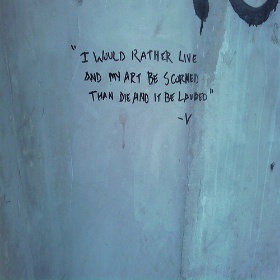 "I WOULD RATHER LIVE
AND MY ART BE SCORNED
THAN DIE AND IT BE LAUDED"
-V